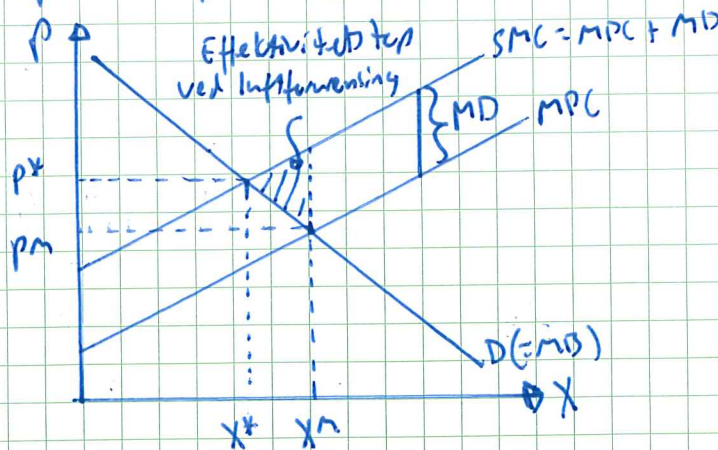 P
Effektivitetstap
ved luftforurensing
SMC = MPC + MD
MD
MPC
P*
PM
D(=MB)
X
X* XM